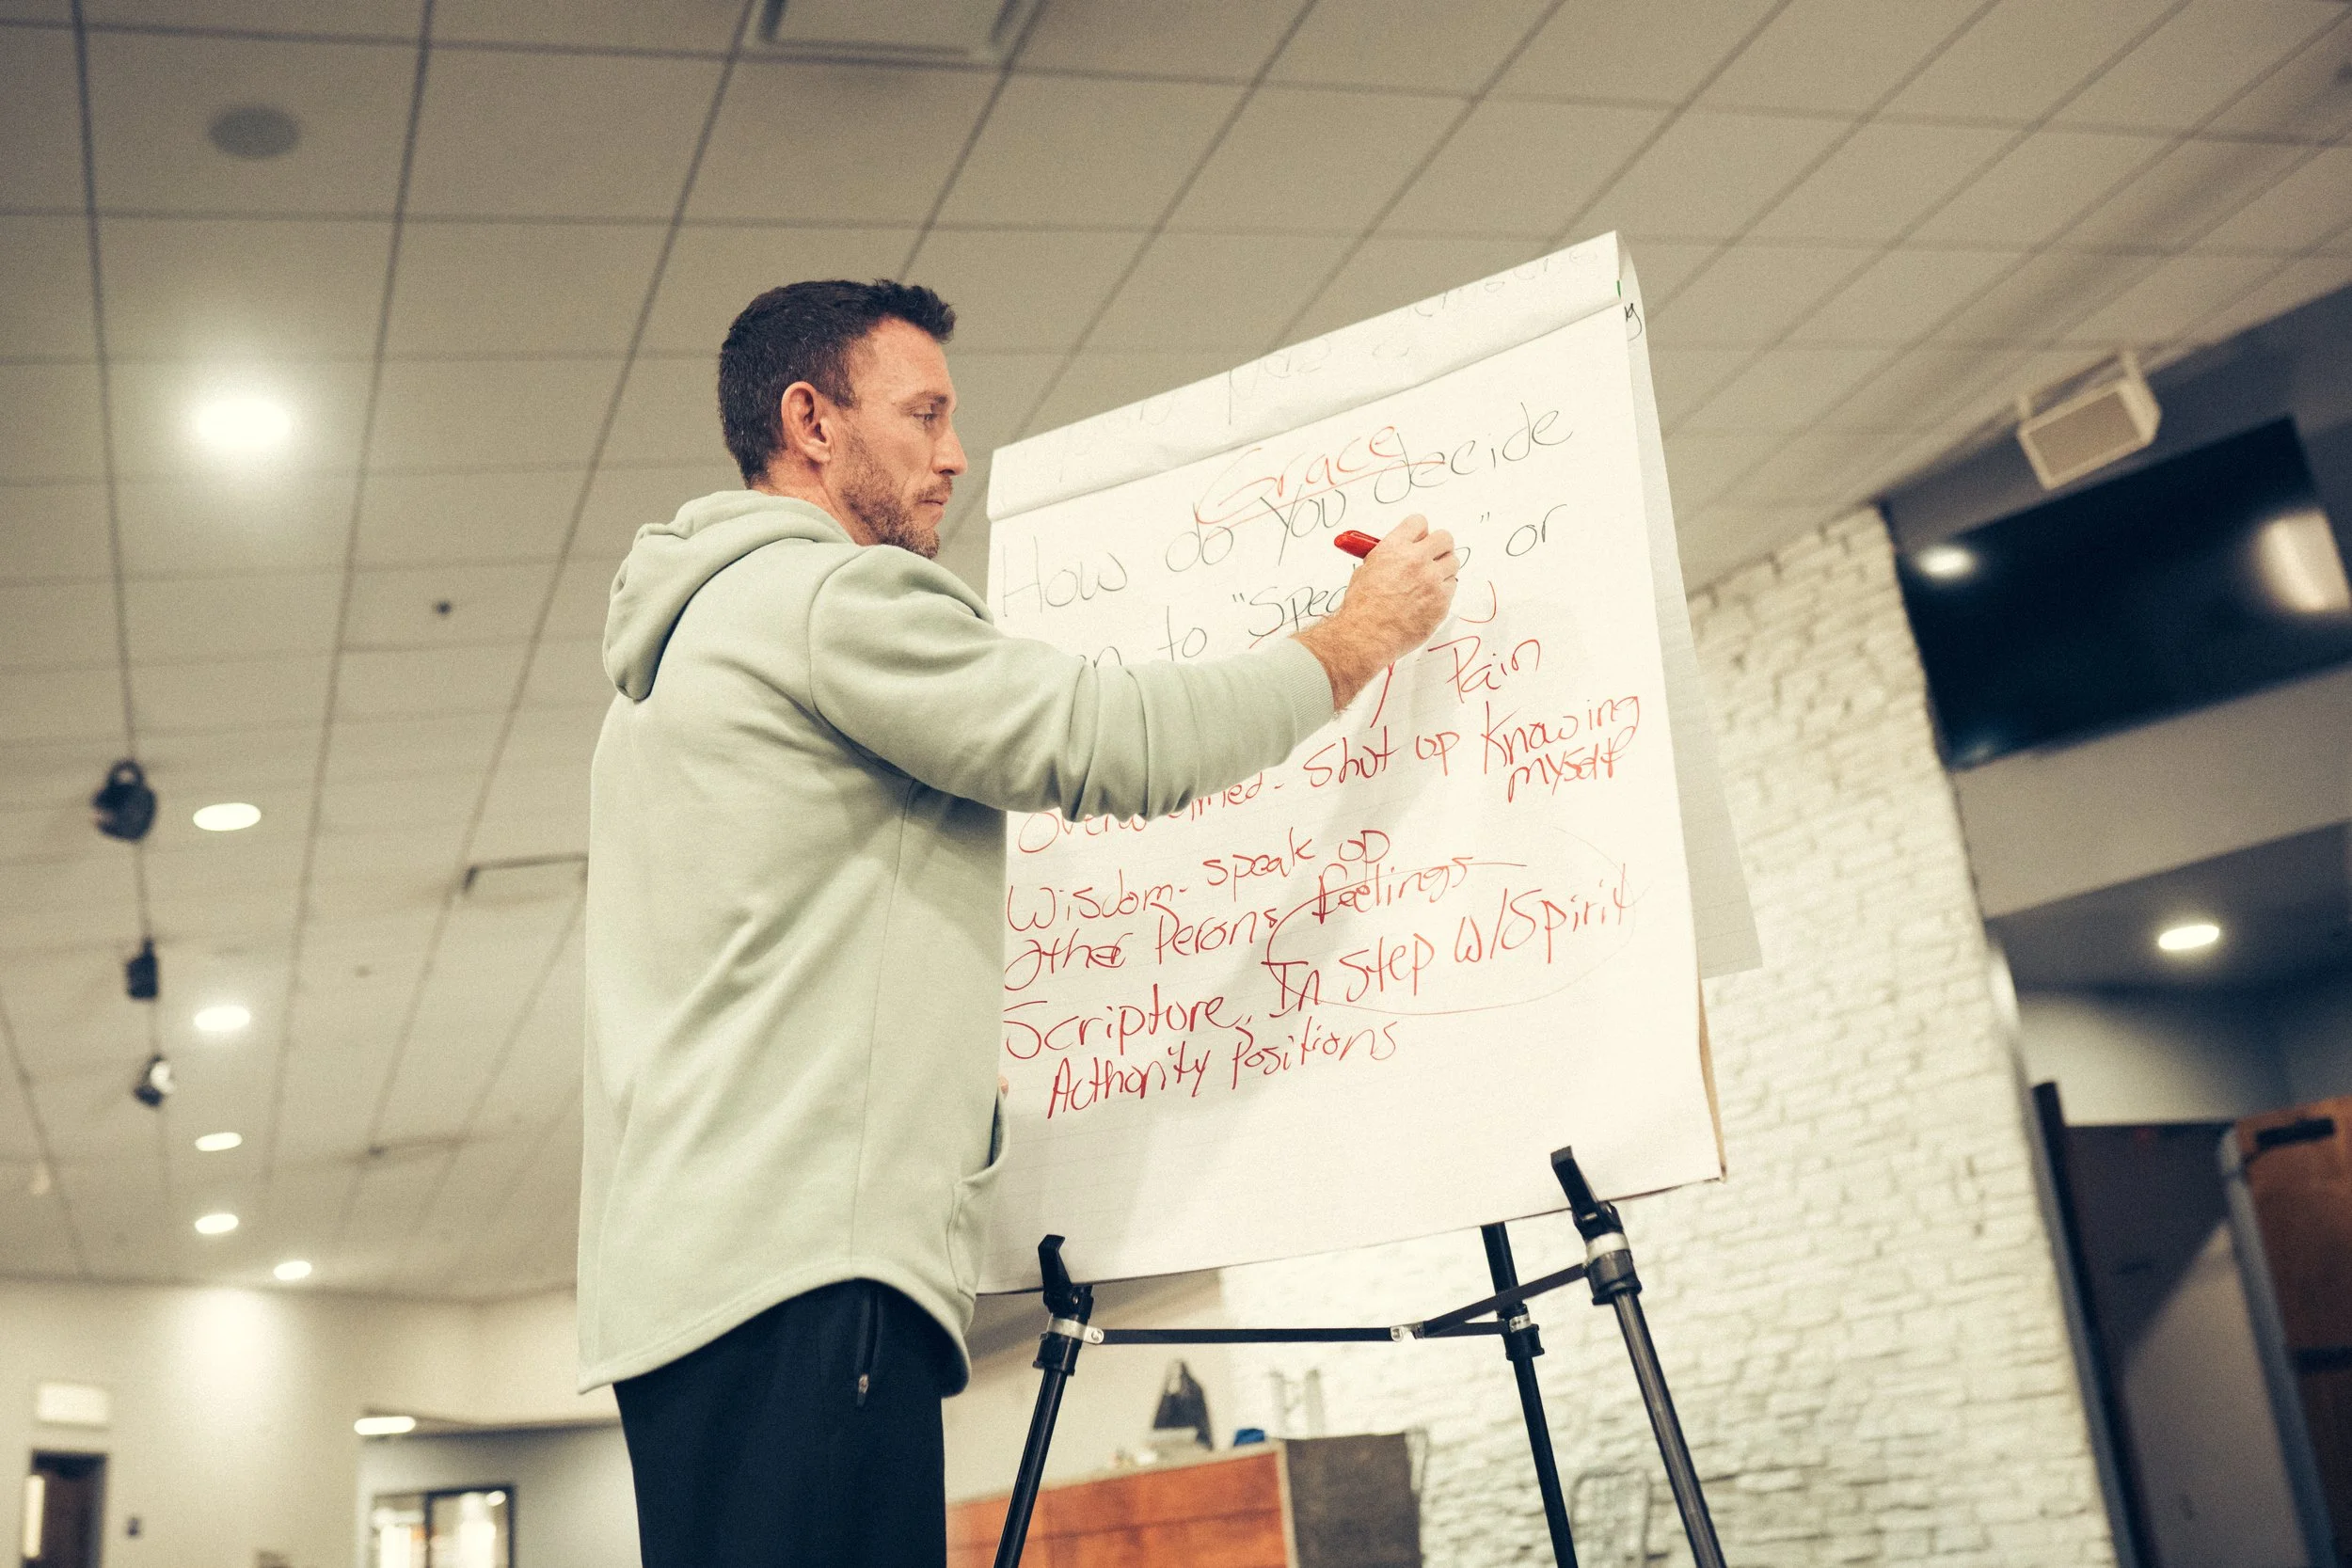 Grace
How do You decide
to "Spea " or
Pain
Overwhelmed - Shut up Knowing
myself
Wisdom - speak up
Other Persons feelings
Scripture, In Step W/Spirit
Authority Positions